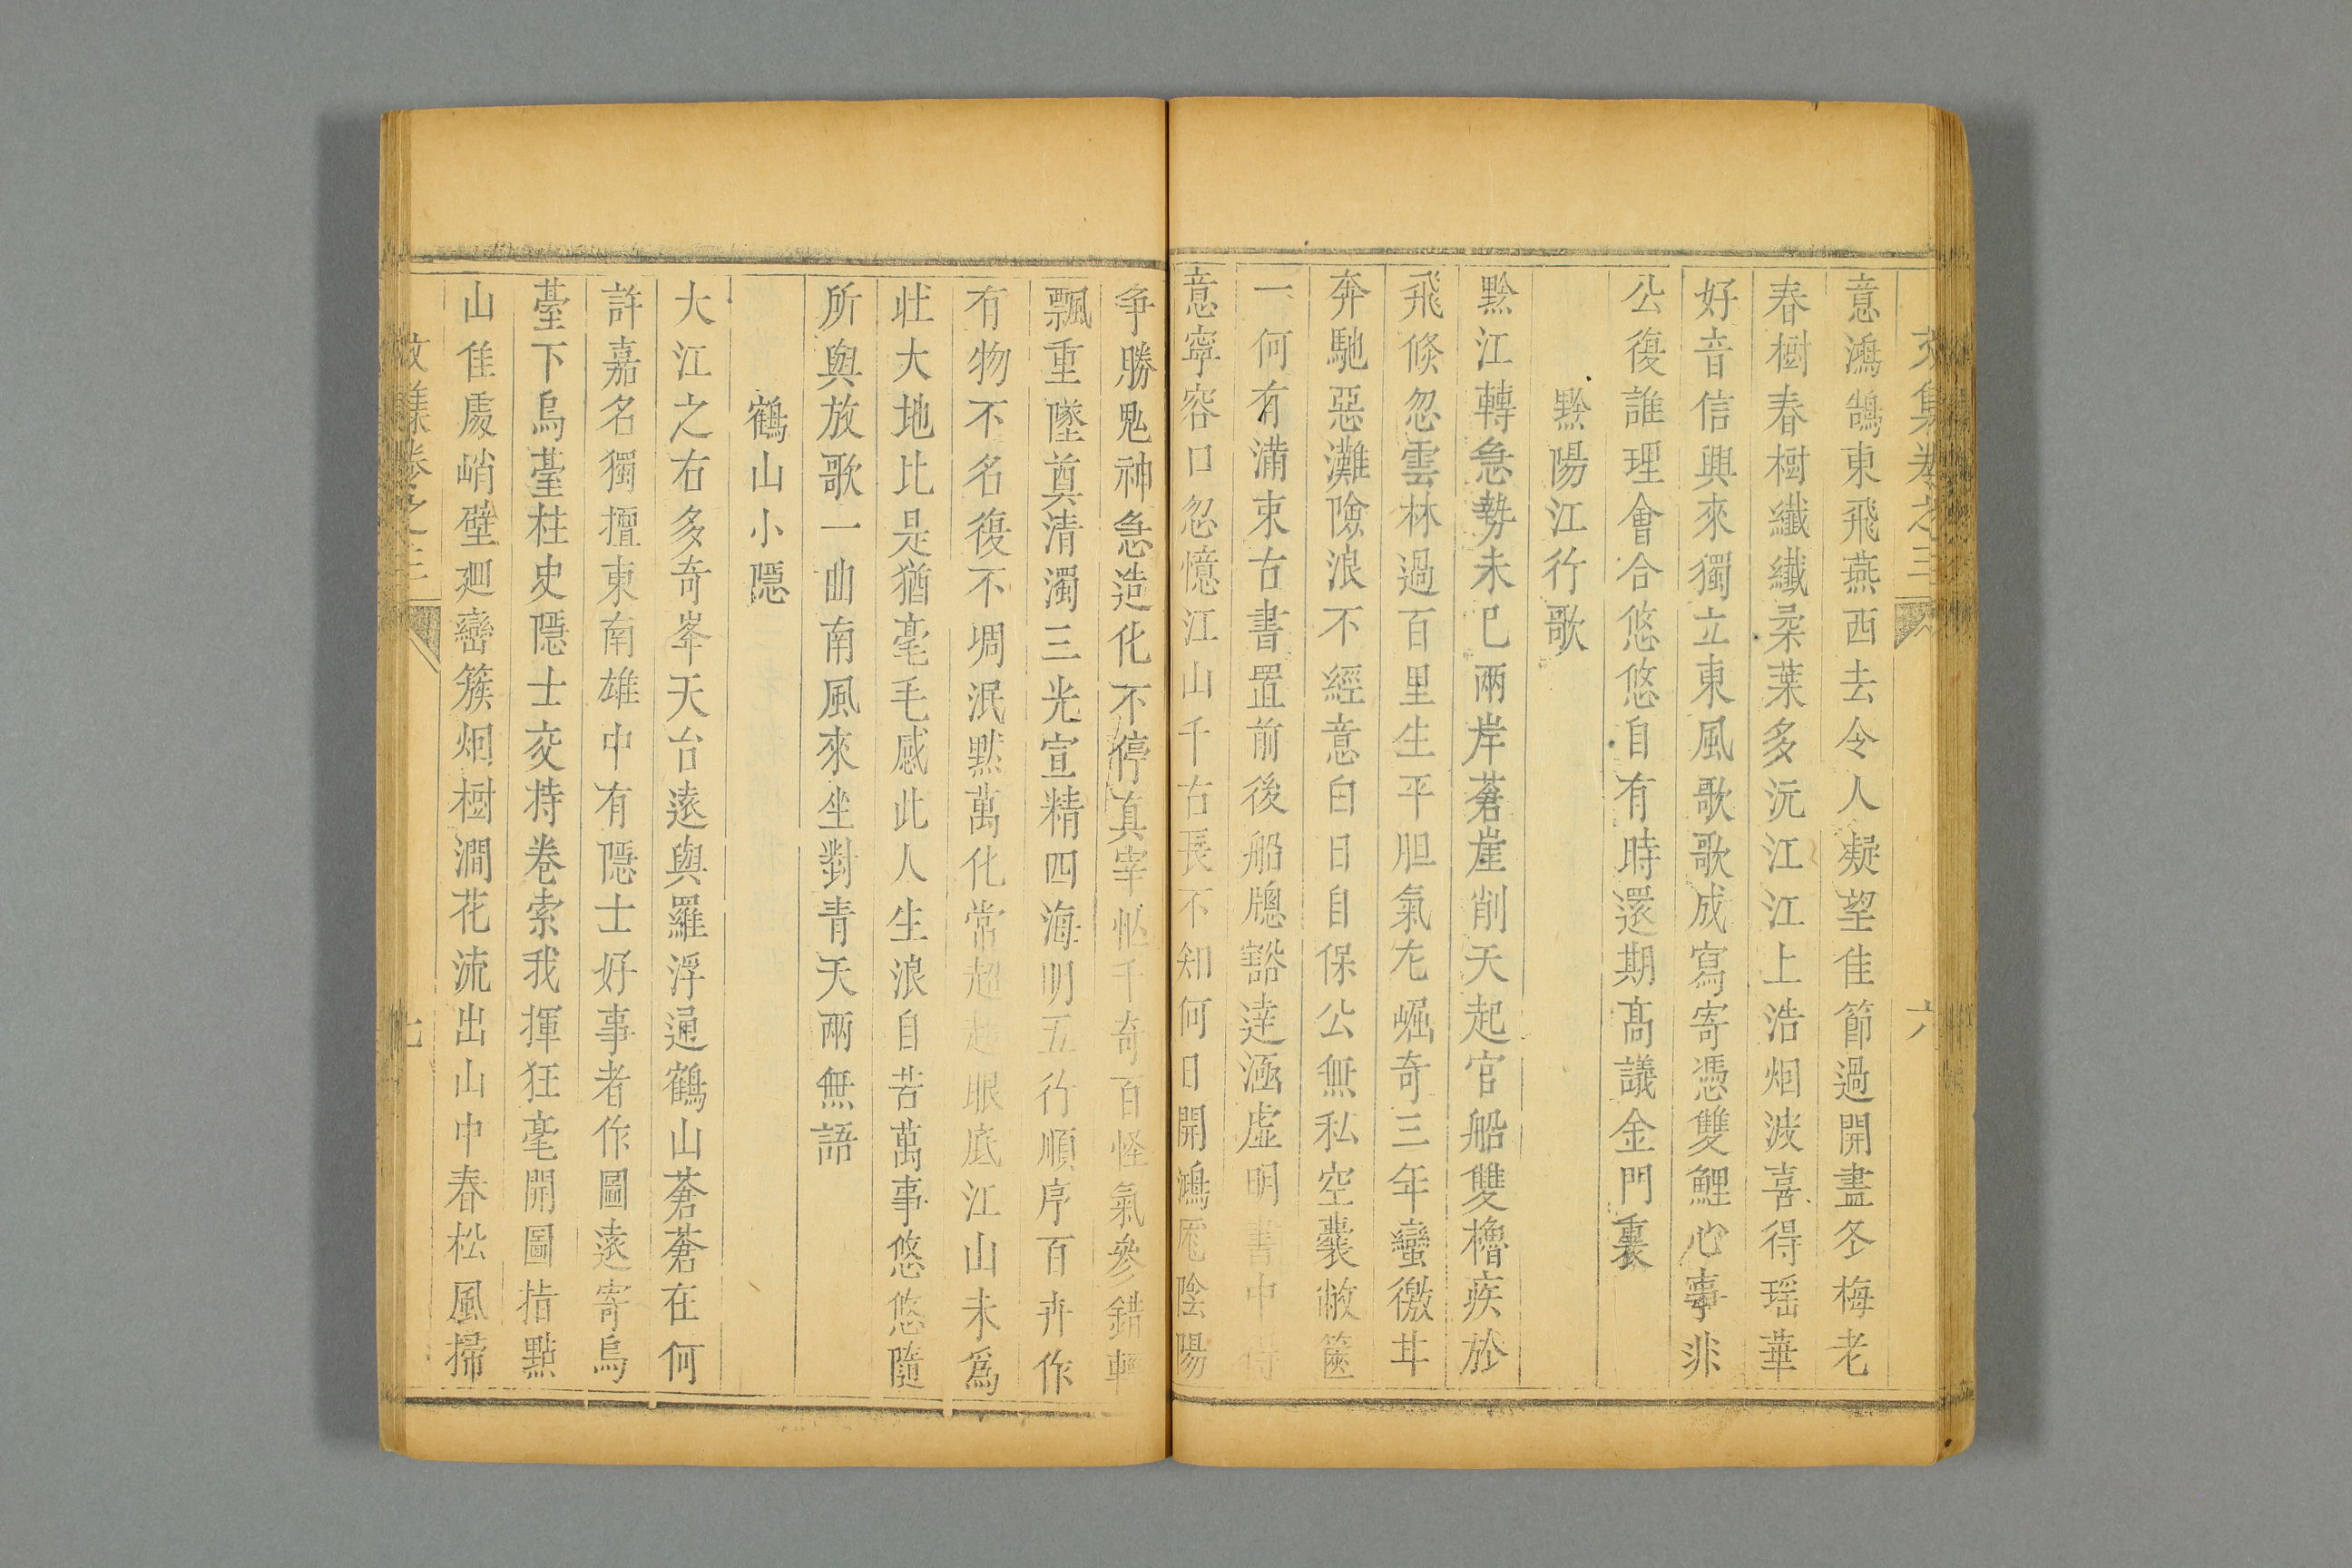 集卷之三
六
意鴻鵠東飛燕西去令人凝望佳節過開盡冬梅老
春樹春樹纖纖柔葉多沅江江上浩烟波喜得瑶華
好音信興來獨立東風歌歌成寫寄憑雙鯉心事非
公復誰理會合悠悠自有時還期髙議金門裏
黔陽江行歌
黔江轉急勢未已兩岸蒼崖削天起官船雙櫓疾於
飛倏忽雲林過百里生平胆氣尤崛奇三年蠻徼
奔馳惡灘險浪不經意白日自保公無私空囊敝篋
一何有滿束古書置前後船牕豁達涵虛明書中
意寧容口忽憶江山千古長不知何日開鴻厖陰陽
争勝鬼神急造化不停真宰怭千奇百怪氣參錯輕
飄重墜奠清濁三光宣精四海明五行順序百卉作
有物不名復不凋泯黙萬化常超超眼底江山未爲
壯大地比是猶毫毛感此人生浪自苦萬事悠悠隨
所與放歌一曲南風來坐對青天兩無語
鶴山小隱
大江之右多奇峯天台逺與羅浮通鶴山蒼蒼在何
許嘉名獨擅東南雄中有隱士好事者作圖逺寄烏
臺下烏臺柱史隱士交持卷索我揮狂毫開圖指點
山佳處峭壁廻巒簇烟樹澗花流出山中春松風掃
卷之三
七